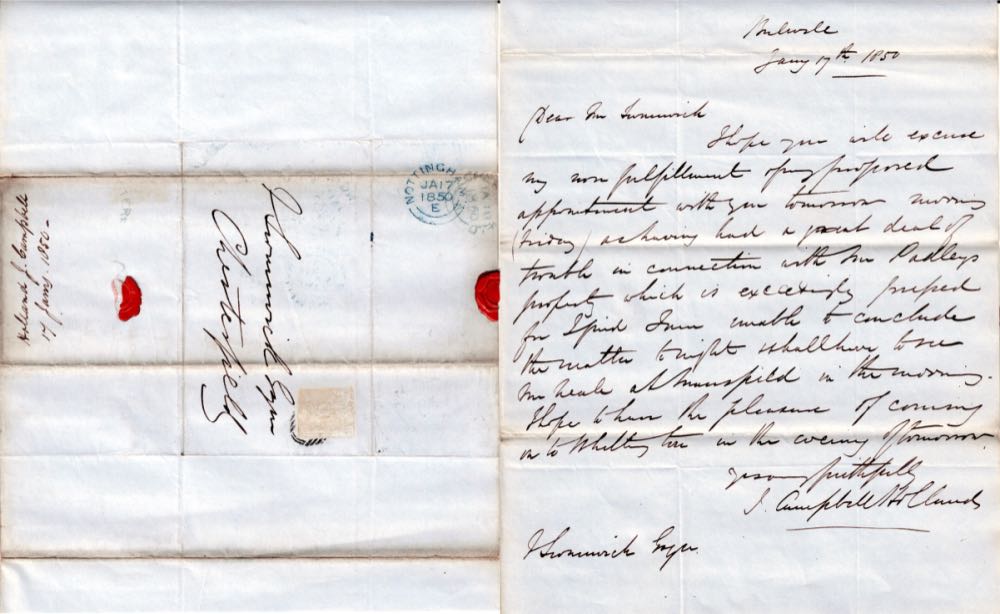 Holland J. Campbell
17 Jany. 1850 -
NOTTINGHAM
JA 17
1850
E
Esqre
Chesterfield
Bulwell
Jany 17th 1850
Dear Mr
I hope you will excuse
my non fulfillment of my proposed
appointment with you tomorrow morning
(Friday) as having had a great deal of
trouble in connection with Mr Padleys
property which is exceedingly
for I find I am unable to conclude
the matter tonight & shall have to see
Mr Heale at Mansfield in the morning.
I hope to have the pleasure of coming
on to Whittington in the evening of tomorrow
yours faithfully
J. Campbell Holland
Esqre.